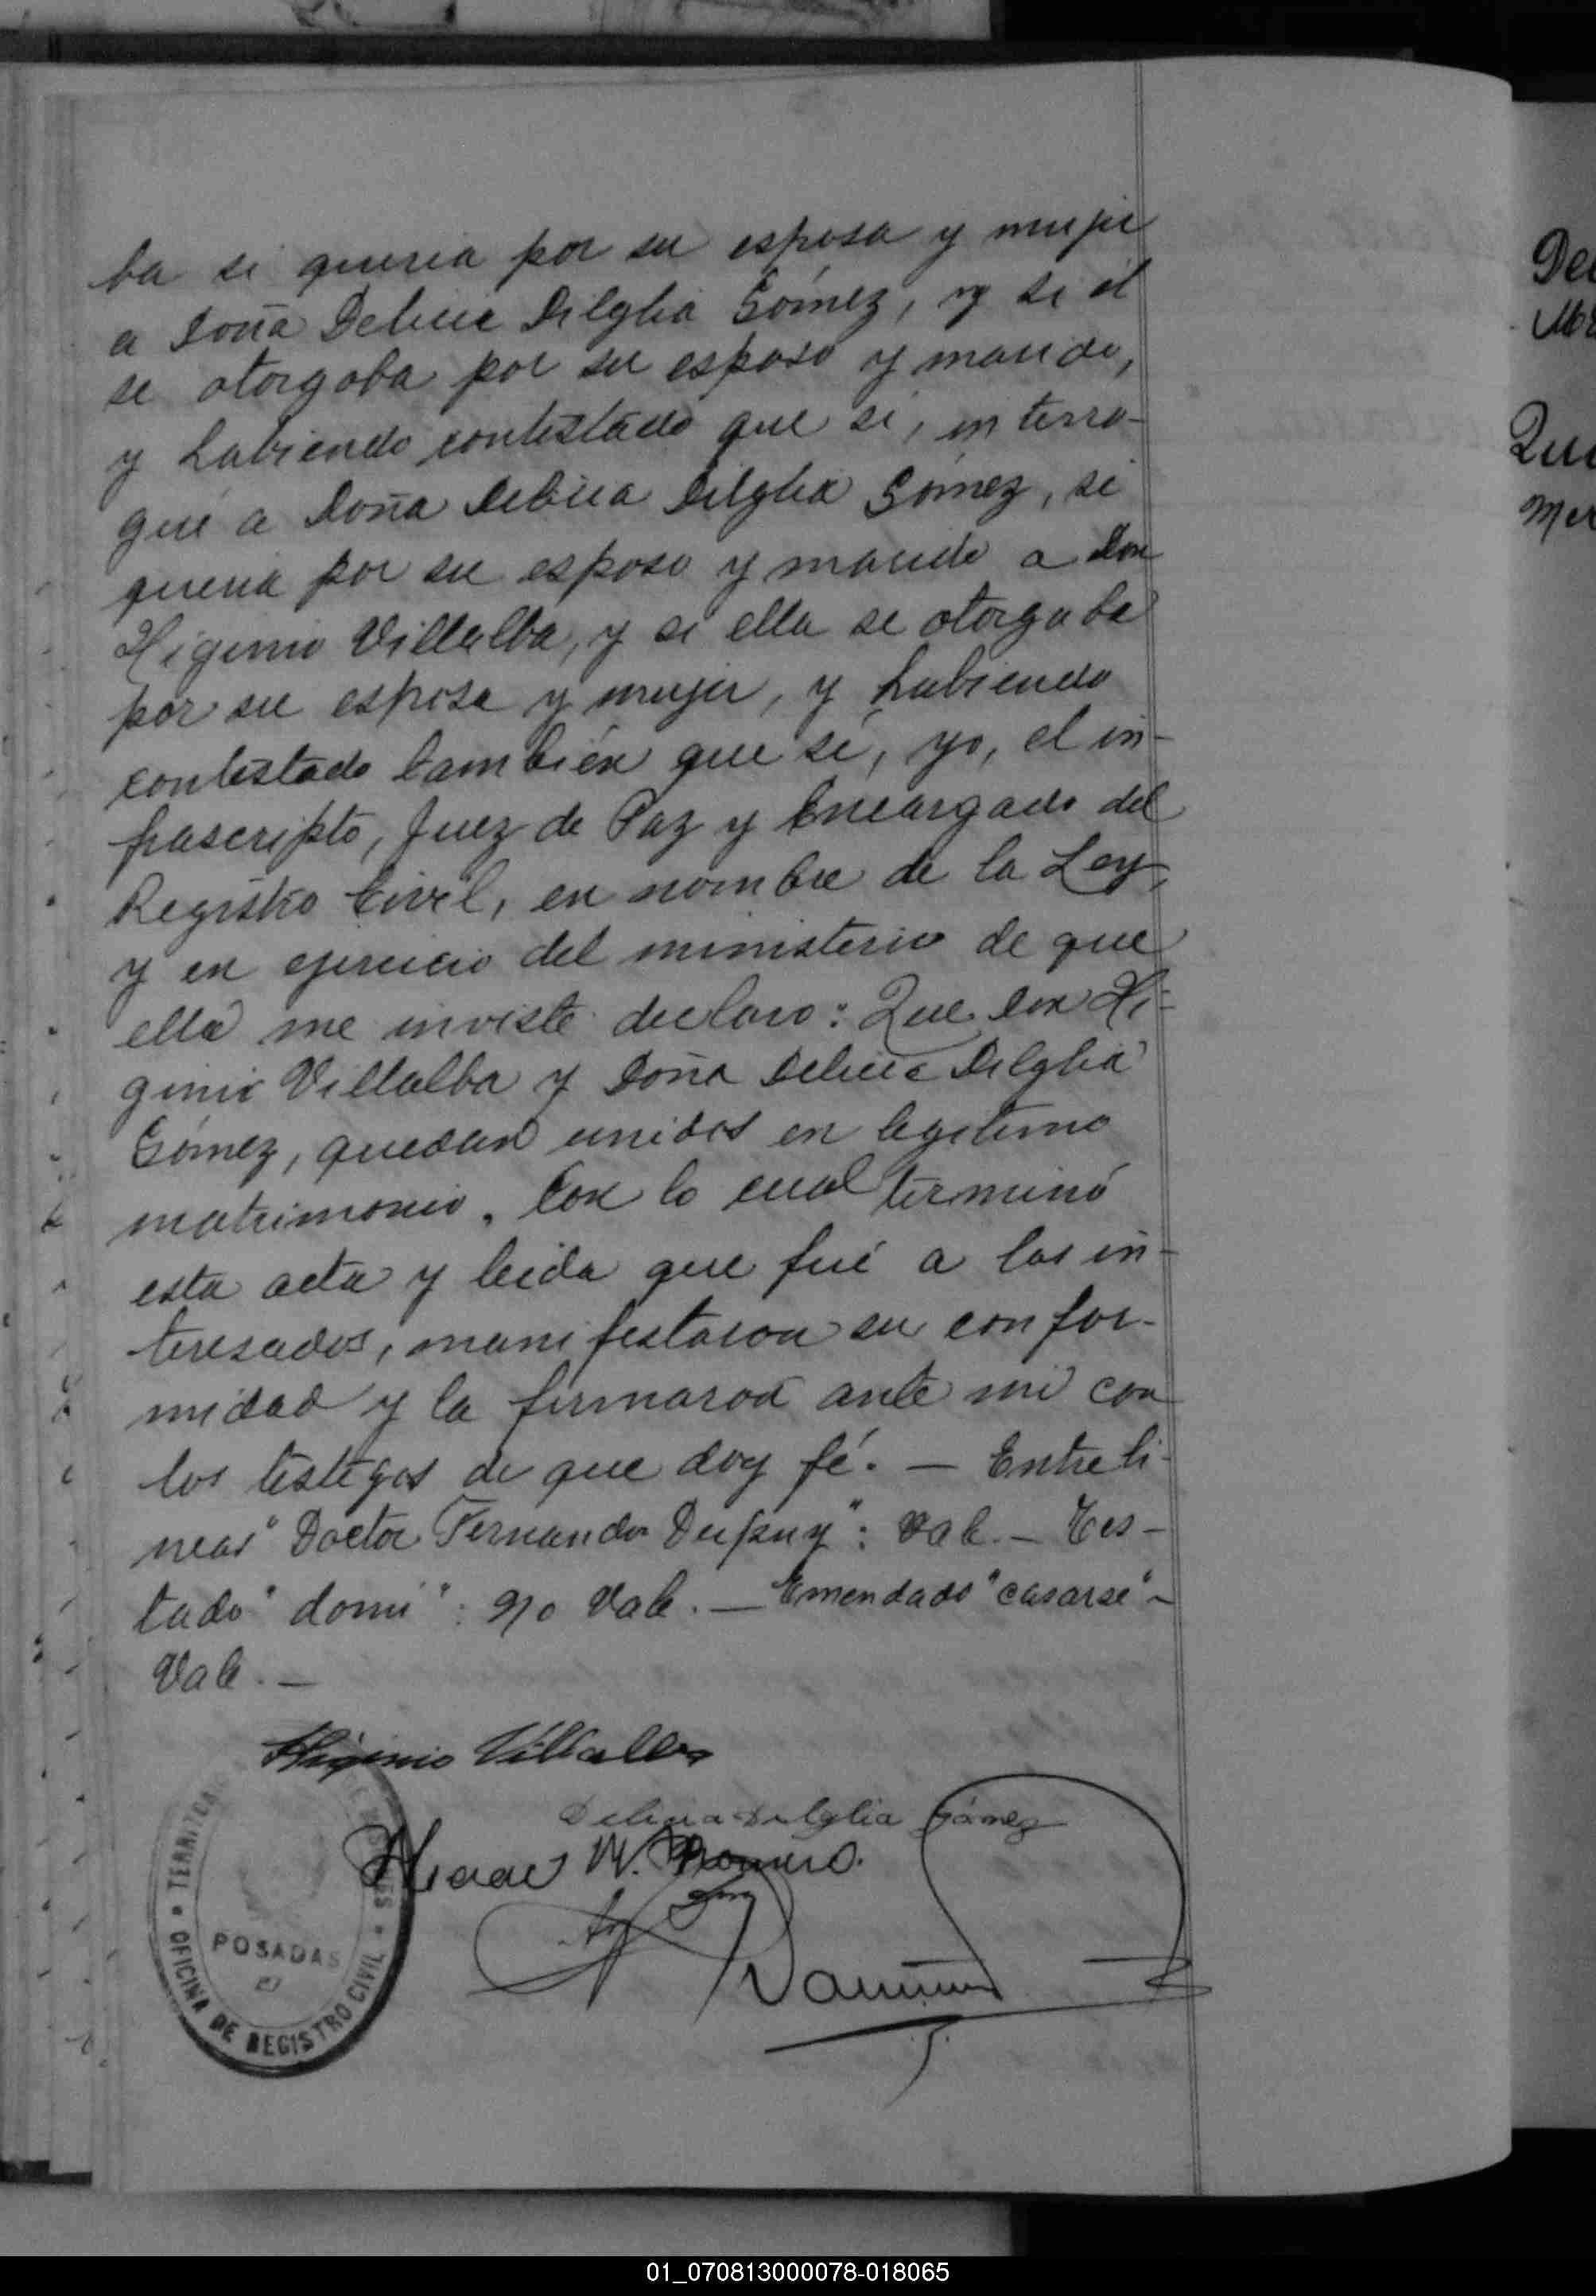 ba si queria por su esposa y mujer
a Doña Delicia Dilglia Gómez, y si el
se otorgaba por su esposo y marido,
y habiendo contestado que si, interro-
gué a Doña Delicia Dilglia Gómez, si
queria por su esposo y marido a Don
Higinio Villalba, y si ella se otorgaba
por su esposa y mujer, y habiendo
contestado también que si, yo, el in-
frascripto, Juez de Paz y Encargado del
Registro Civil, en nombre de la Ley,
y en ejercicio del ministerio de que
ella me inviste declaro: Que Don Hi-
ginio Villalba y Doña Delicia Dilglia
Gómez, quedan unidos en legitimo
matrimonio. Con lo cual terminó
esta acta y leida que fué a los in-
teresados, manifestaron su confor-
midad y la firmaron ante mi con
los testigos de que doy fé. — Entreli-
neas "Doctor Fernando Dupuy": Vale. — Tes-
tado "domi": No Vale. — Emendado "casarse" -
Vale. —
Higinio Villalba
Dilglia Gómez
Isaac M. Romero.
TERRITORIO DE MISIONES
POSADAS
OFICINA DE REGISTRO CIVIL
01_070813000078-018065